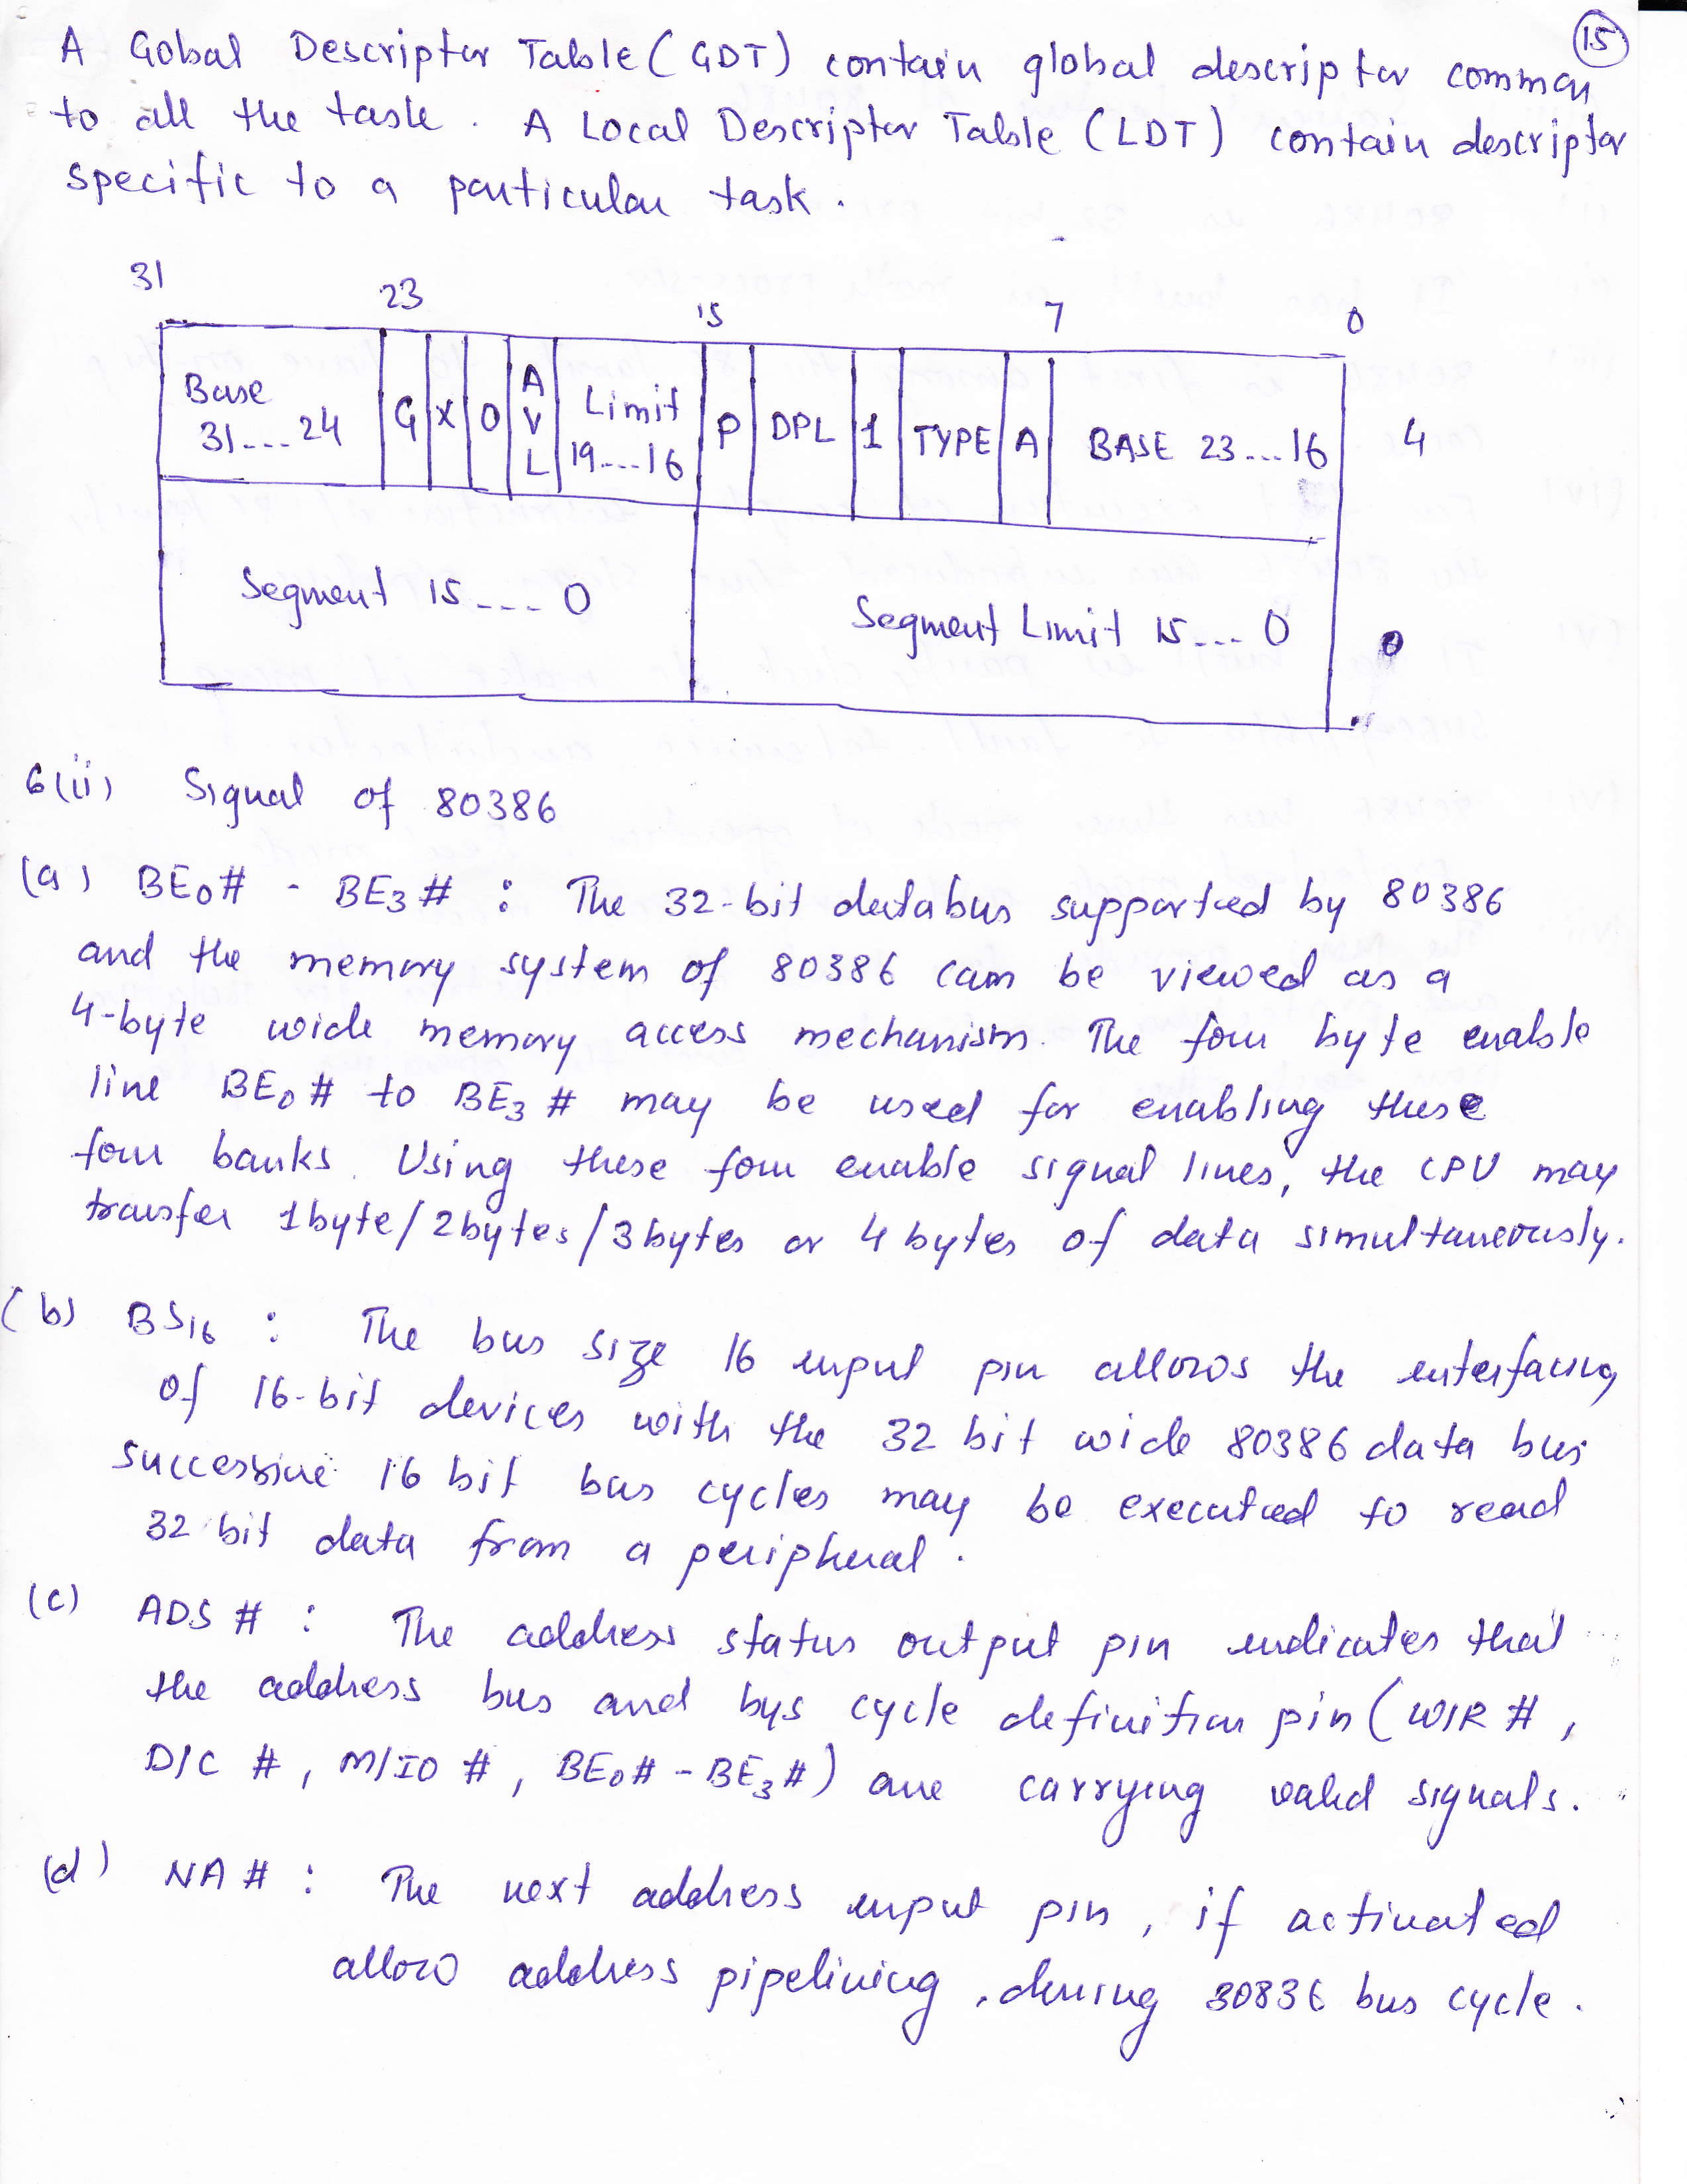 15
A Gobal Descriptor Table (GDT) contain global descriptor common
to all the task. A Local Descriptor Table (LDT) contain descriptor
specific to a particular task.
31 23 15 7 0
Base 31....24 G X 0 AVL Limit 19....16 P DPL 1 TYPE A BASE 23...16 4
Segment 15---- 0 Segment Limit 15--- 0 0
6(ii) Signal of 80386
(a) BE0# - BE3# : The 32-bit databus supported by 80386
and the memory system of 80386 can be viewed as a
4-byte wide memory access mechanism. The four byte enable
line BE0# to BE3# may be used for enabling these
four banks. Using these four enable signal lines, the CPU may
transfer 1byte/2bytes/3bytes or 4 bytes of data simultaneously.
(b) BS16 : The bus size 16 input pin allows the interfacing
of 16-bit devices with the 32 bit wide 80386 data bus
successive 16 bit bus cycles may be executed to read
32 bit data from a peripheral.
(c) ADS # : The address status output pin indicates that
the address bus and bys cycle definition pin (W/R #,
D/C #, M/IO #, BE0# - BE3#) are carrying valid signals.
(d) NA # : The next address input pin, if activated
allow address pipelining, during 30836 bus cycle.